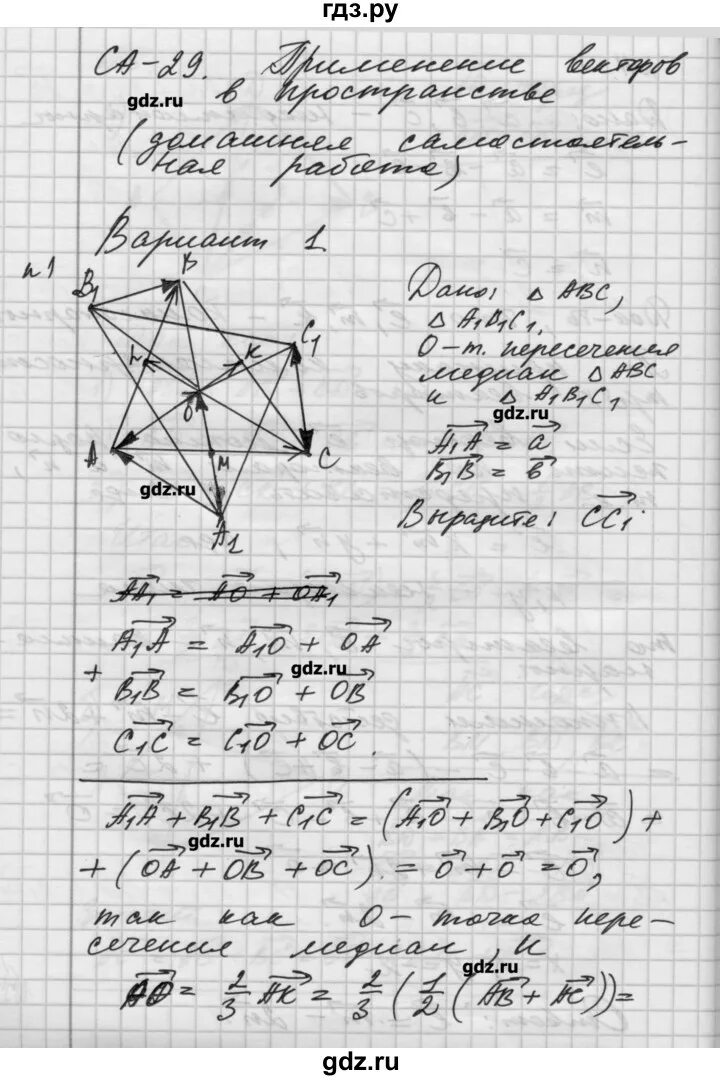 гдз.ру
СА-29. Применение векторов
gdz.ru
в пространстве
(домашняя самостоятель-
ная работа)
Вариант 1.
n 1
B
B₁
C₁
L
K
O
A
M
C
A₁
gdz.ru
Дано: △ ABC,
△ A₁B₁C₁,
O-т. пересечения
медиан △ABC
и △ A₁B₁C₁
gdz.ru
A₁A = a
B₁B = b
Выразите: CC₁
AA₁ = AO + OA₁
A₁A = A₁O + OA
gdz.ru
+
B₁B = B₁O + OB
C₁C = C₁O + OC.
A₁A + B₁B + C₁C = (A₁O + B₁O + C₁O) +
gdz.ru
+ (OA + OB + OC). = O + O = O,
так как O - точка пере-
сечения медиан, и
gdz.ru
AO = 2/3 AK = 2/3 (1/2 (AB + AC)) =
gdz.ru